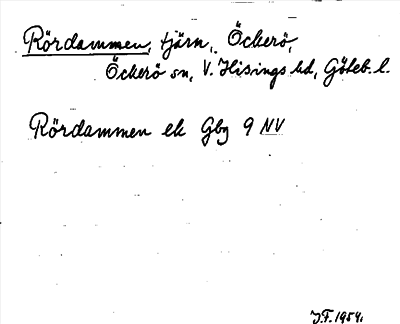 Rördammen, tjärn, Öckerö,
Öckerö sn, V. Hisings hd, Göteb. l.
Rördammen ek Gbg 9 NV
J.F. 1954.